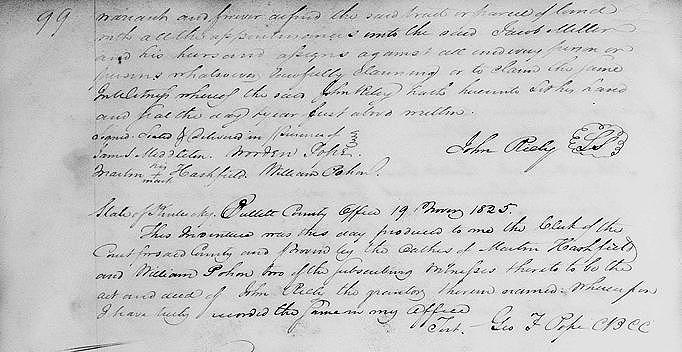 99
warrant and forever defend the said tract or parcel of Land
with all the appertenances unto the said Jacob Miller
and his heirs and assigns against all and every person or
persons whatsoever lawfully claiming or to claim the same
In witness whereof the said John Riely hath hereunto set his hand
and seal the day & year first above written.
Signed Sealed & Delivered in presence of
James Middleton. Worden Pope
John Riely LS
Martin his + mark Hashfield. William Pohon.
State of Kentucky. Bullett County Office 19 Novr 1825.
This Indenture was this day produced to me the Clerk of the
Court for said County and proven by the oathes of Martin Hashfield
and William Pohon two of the subscribing witnesses thereto to be the
act and deed of John Riely the grantor therein named. Whereupon
I have truly recorded the same in my office
Test. Geo F Pope CBCC